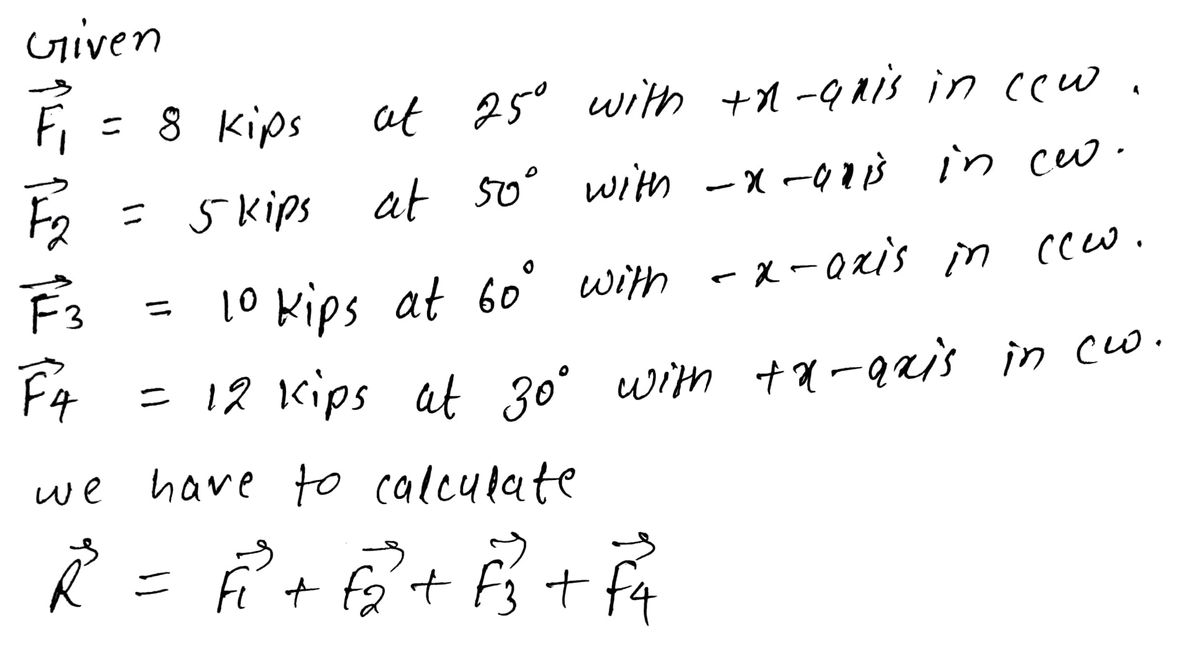 Given
F₁ = 8 kips at 25° with +x-axis in ccw.
F₂ = 5 kips at 50° with -x-axis in cw.
F₃ = 10 kips at 60° with -x-axis in ccw.
F₄ = 12 kips at 30° with +x-axis in cw.
we have to calculate
R⃗ = F₁⃗ + F₂⃗ + F₃⃗ + F₄⃗